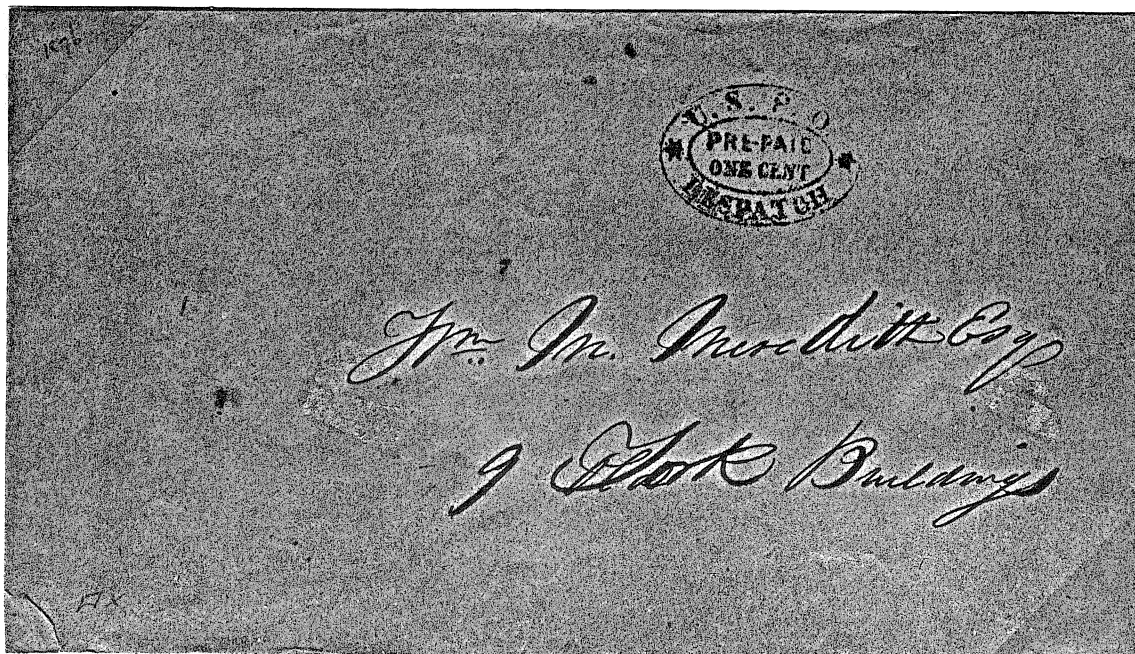 U. S. P. O
PRE-PAID
ONE CENT
DESPATCH
Wm M. Meredith Esq
9 Buildings